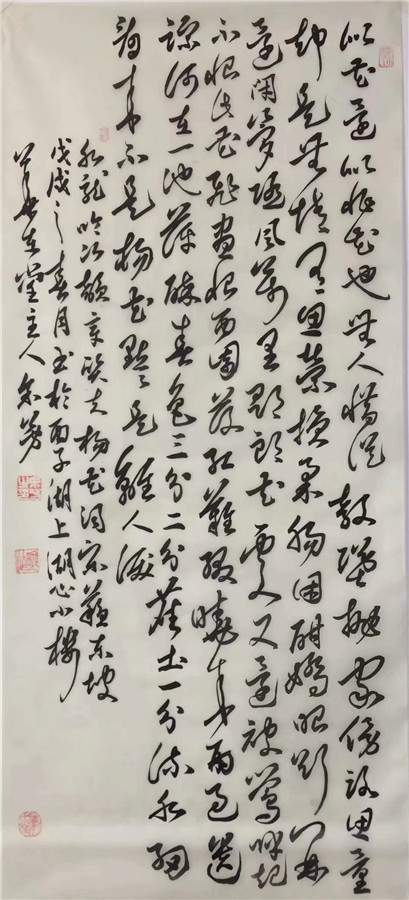 似花還似非花也無人惜從教墜抛家傍路思量
却是無情有思縈損柔腸困酣嬌眼欲開
還閉夢隨風萬里尋郎去處又還被鶯呼起
不恨此花飛盡恨西園落紅難綴曉來雨過遺
踪何在一池萍碎春色三分二分塵土一分流水細
看來不是楊花點點是離人淚
水龍吟次韻章質夫楊花詞宋蘇東坡
戊戌之春月書於西子湖上湖心小樓
在堂主人